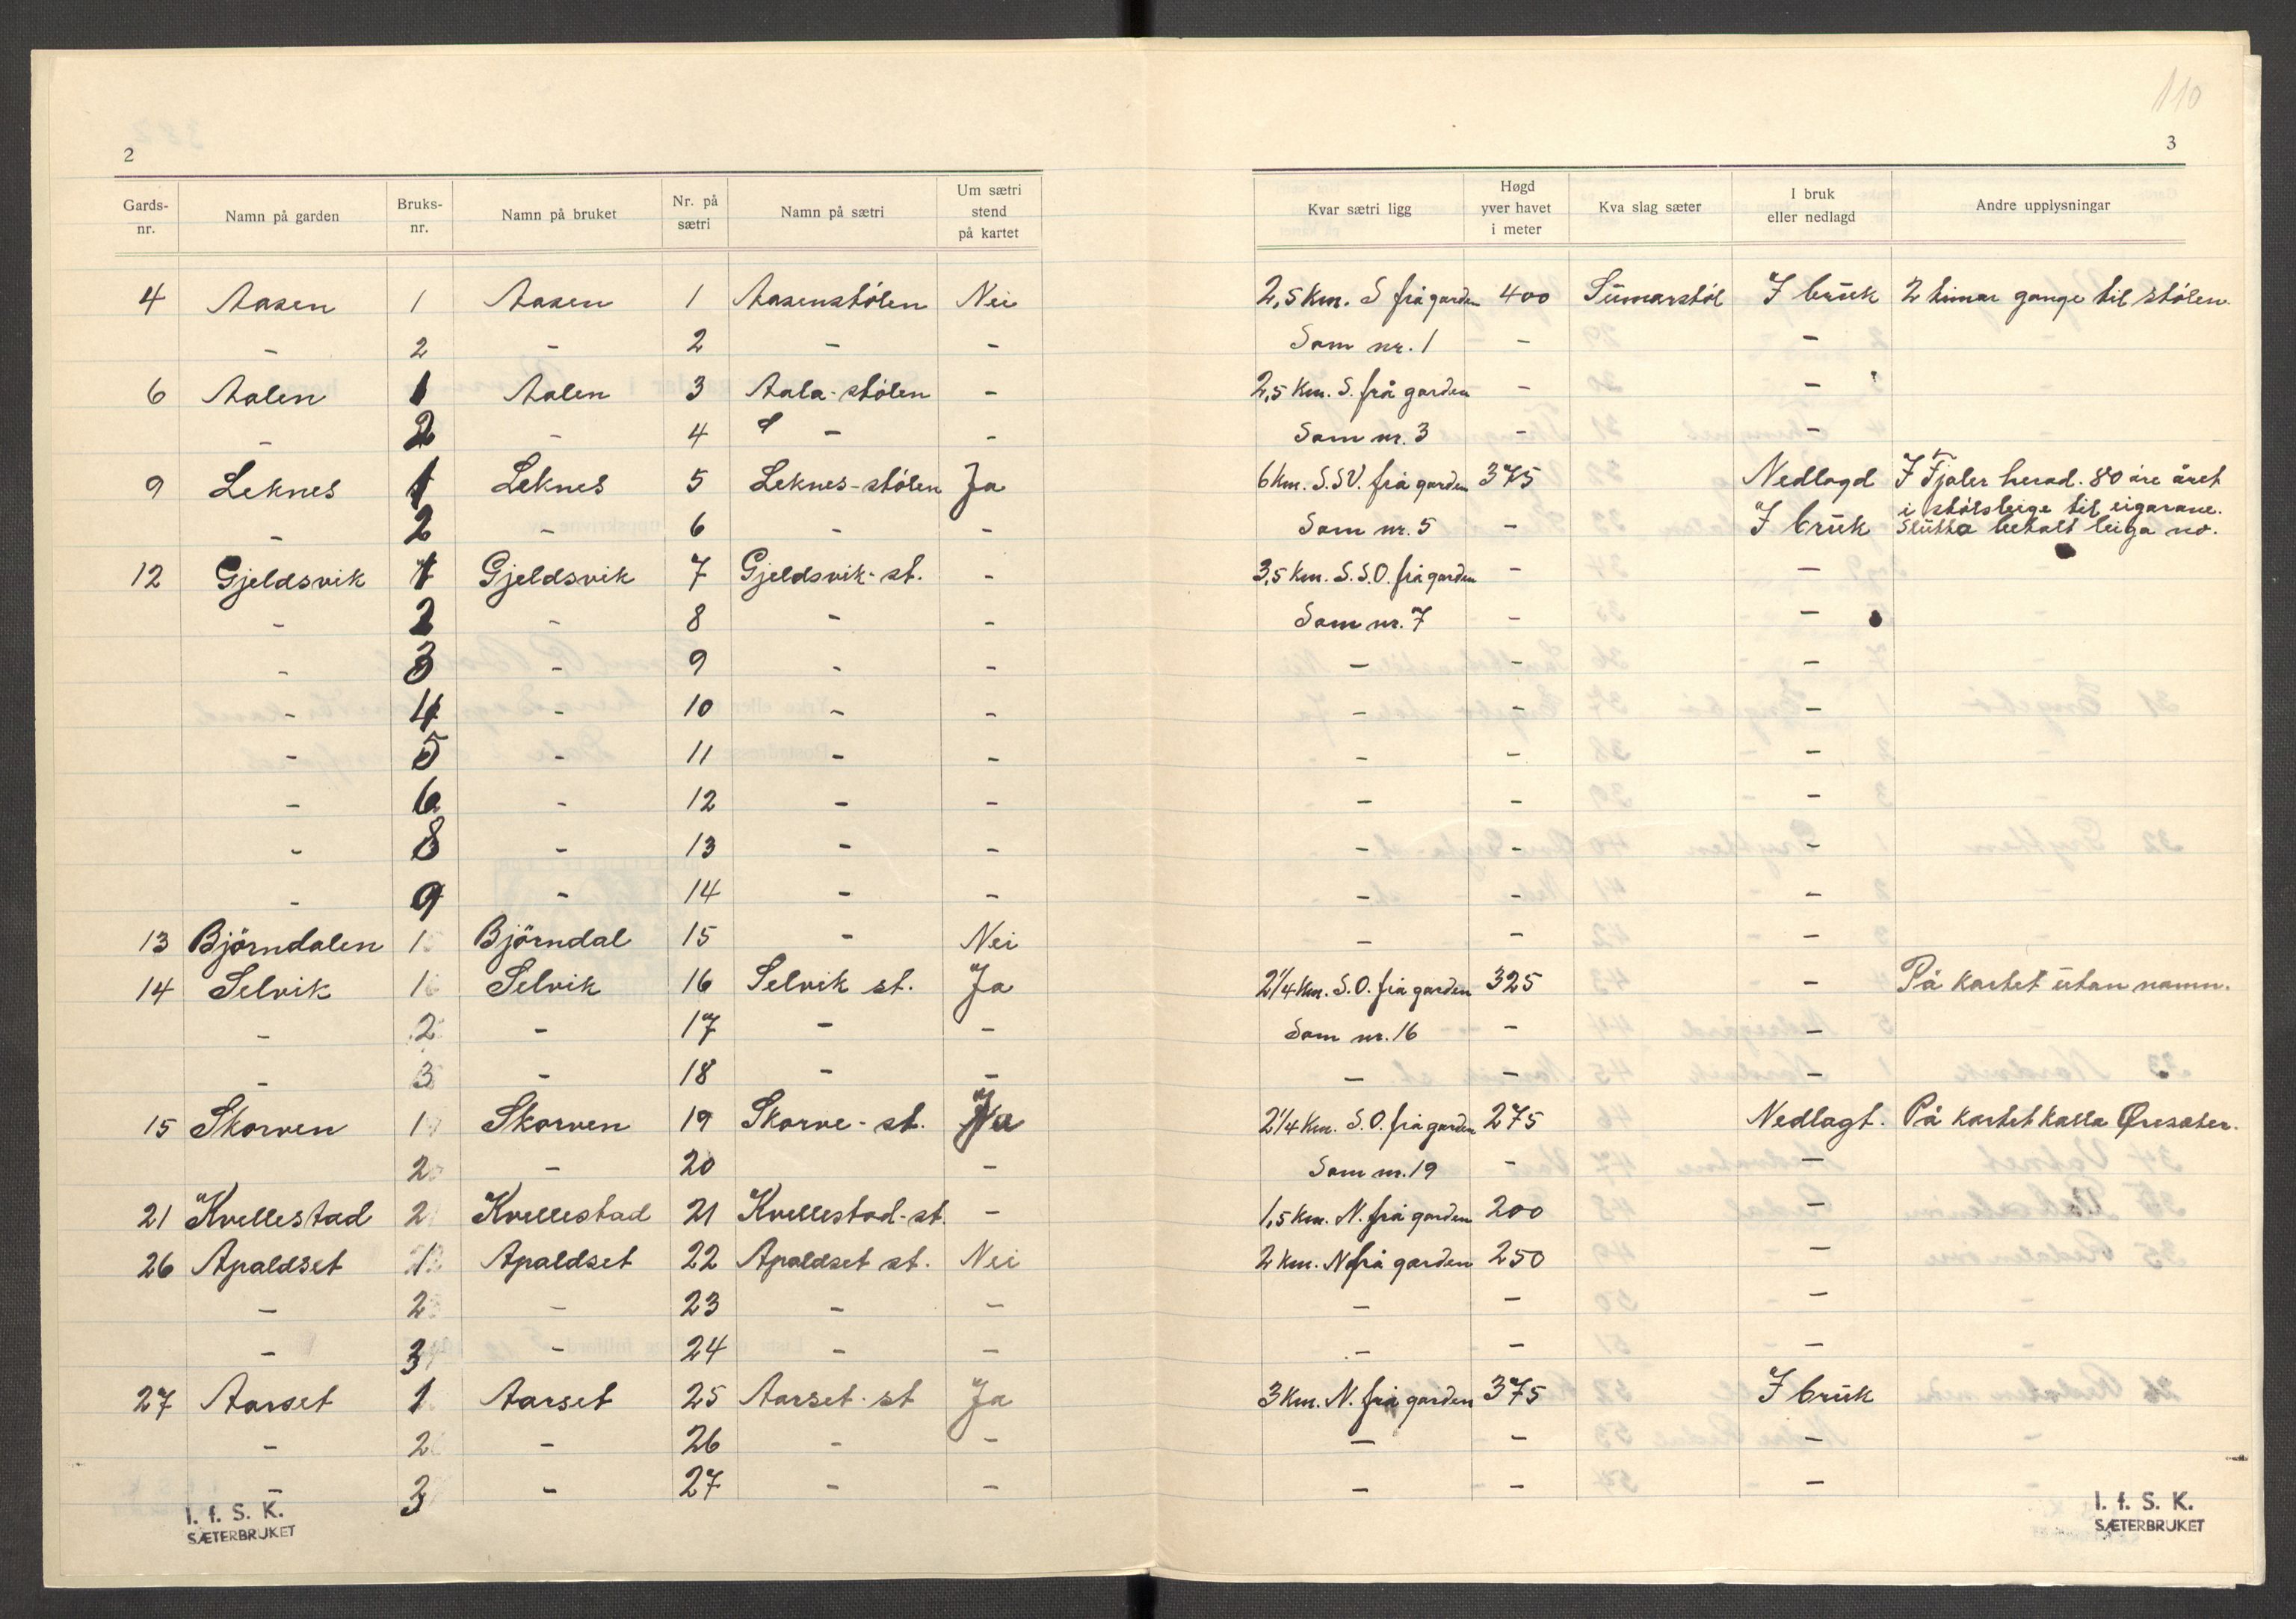 110
2
3
Gards-nr. | Namn på garden | Bruks-nr. | Namn på bruket | Nr. på sætri | Namn på sætri | Um sætri stend på kartet | Kvar sætri ligg | Høgd yver havet i meter | Kva slag sæter | I bruk eller nedlagd | Andre upplysningar
4 Aasen 1 Aasen 1 Aasenstølen Nei 2,5 Km. S frå garden 400 Sumarstøl I bruk 2 timar gange til stølen.
- 2 - 2 - - Som nr. 1 - -
6 Aalen 1 Aalen 3 Aala-stølen - 2,5 Km. S. frå garden - -
- 2 - 4 - - Som nr. 3 - -
9 Leknes 1 Leknes 5 Leknes-stølen Ja 6 Km. S.SV. frå garden 375 Nedlagd I Fjaler herad. 80 øre året
i stølsleige til eigarane.
- 2 - 6 - - Som nr. 5 - I bruk Slutta betalt leiga no.
12 Gjeldsvik 1 Gjeldsvik 7 Gjeldsvik-st. - 3,5 Km. S.S.O. frå garden - -
- 2 - 8 - - Som nr. 7 - -
- 3 - 9 - - - - -
- 4 - 10 - - - - -
- 5 - 11 - - - - -
- 6 - 12 - - - - -
- 8 - 13 - - - - -
- 9 - 14 - - - - -
13 Björndalen 1 Björndal 15 - Nei - - -
14 Selvik 1 Selvik 16 Selvik st. Ja 2 1/4 Km. S.O. frå garden 325 - På kartet utan namn.
- 2 - 17 - - Som nr. 16 - -
- 3 - 18 - - - - -
15 Skorven 1 Skorven 19 Skorve-st. Ja 2 1/4 Km. S.O. frå garden 275 Nedlagt. På kartet kalla Øresæter.
2 - 20 - Som nr. 19 - -
21 Kvellestad 2 Kvellestad 21 Kvellestad-st. - 1,5 Km. N. frå garden 200 -
26 Apaldset 1 Apaldset 22 Apaldset st. Nei 2 Km. N frå garden 250 -
- 2 - 23 - - - - -
- 3 - 24 - - - - -
27 Aarset 1 Aarset 25 Aarset-st Ja 3 Km. N. frå garden 375 I bruk
- 2 - 26 - - - - -
- 3 - 27 - - - - -
I. f. S. K.
SÆTERBRUKET
I. f. S. K.
SÆTERBRUKET